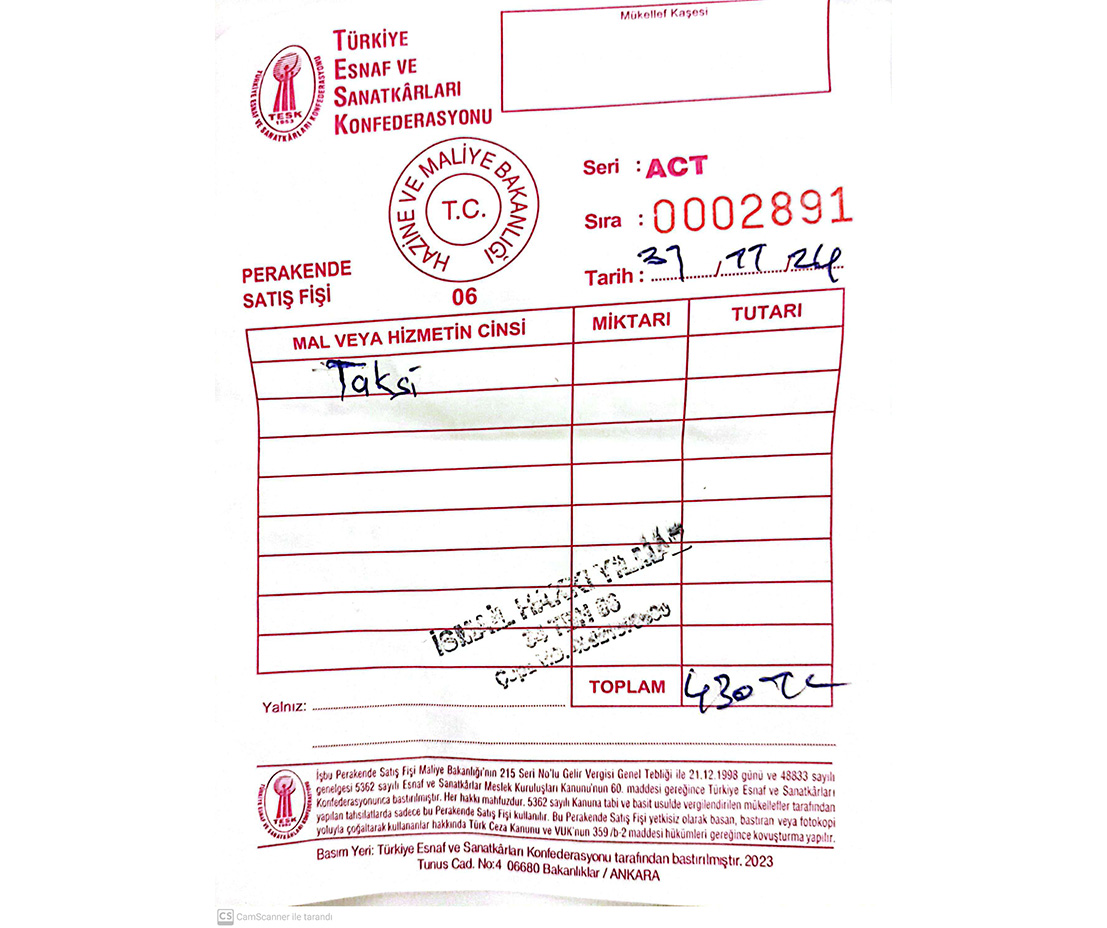 Mükellef Kaşesi
TÜRKİYE
ESNAF VE
SANATKÂRLARI
KONFEDERASYONU
TÜRKİYE ESNAF VE SANATKÂRLARI KONFEDERASYONU
TESK
1953
HAZİNE VE MALİYE BAKANLIĞI
T.C.
06
Seri : ACT
Sıra : 0002891
Tarih : 31/11/24
PERAKENDE
SATIŞ FİŞİ
MAL VEYA HİZMETİN CİNSİ MİKTARI TUTARI
Taksi
İSMAİL HAKKI YILMAZ
TOPLAM 430 TL
Yalnız:
İşbu Perakende Satış Fişi Maliye Bakanlığı'nın 215 Seri No'lu Gelir Vergisi Genel Tebliği ile 21.12.1998 günü ve 48833 sayılı
genelgesi 5362 sayılı Esnaf ve Sanatkârlar Meslek Kuruluşları Kanunu'nun 60. maddesi gereğince Türkiye Esnaf ve Sanatkârları
Konfederasyonunca bastırılmıştır. Her hakkı mahfuzdur. 5362 sayılı Kanuna tabi ve basit usulde vergilendirilen mükellefler tarafından
yapılan tahsilatlarda sadece bu Perakende Satış Fişi kullanılır. Bu Perakende Satış Fişi yetkisiz olarak basan, bastıran veya fotokopi
yoluyla çoğaltarak kullananlar hakkında Türk Ceza Kanunu ve VUK'nun 359 /b-2 maddesi hükümleri gereğince kovuşturma yapılır.
TÜRKİYE ESNAF VE SANATKÂRLARI KONFEDERASYONU
TESK
Basım Yeri: Türkiye Esnaf ve Sanatkârları Konfederasyonu tarafından bastırılmıştır. 2023
Tunus Cad. No:4 06680 Bakanlıklar / ANKARA
CS CamScanner ile tarandı